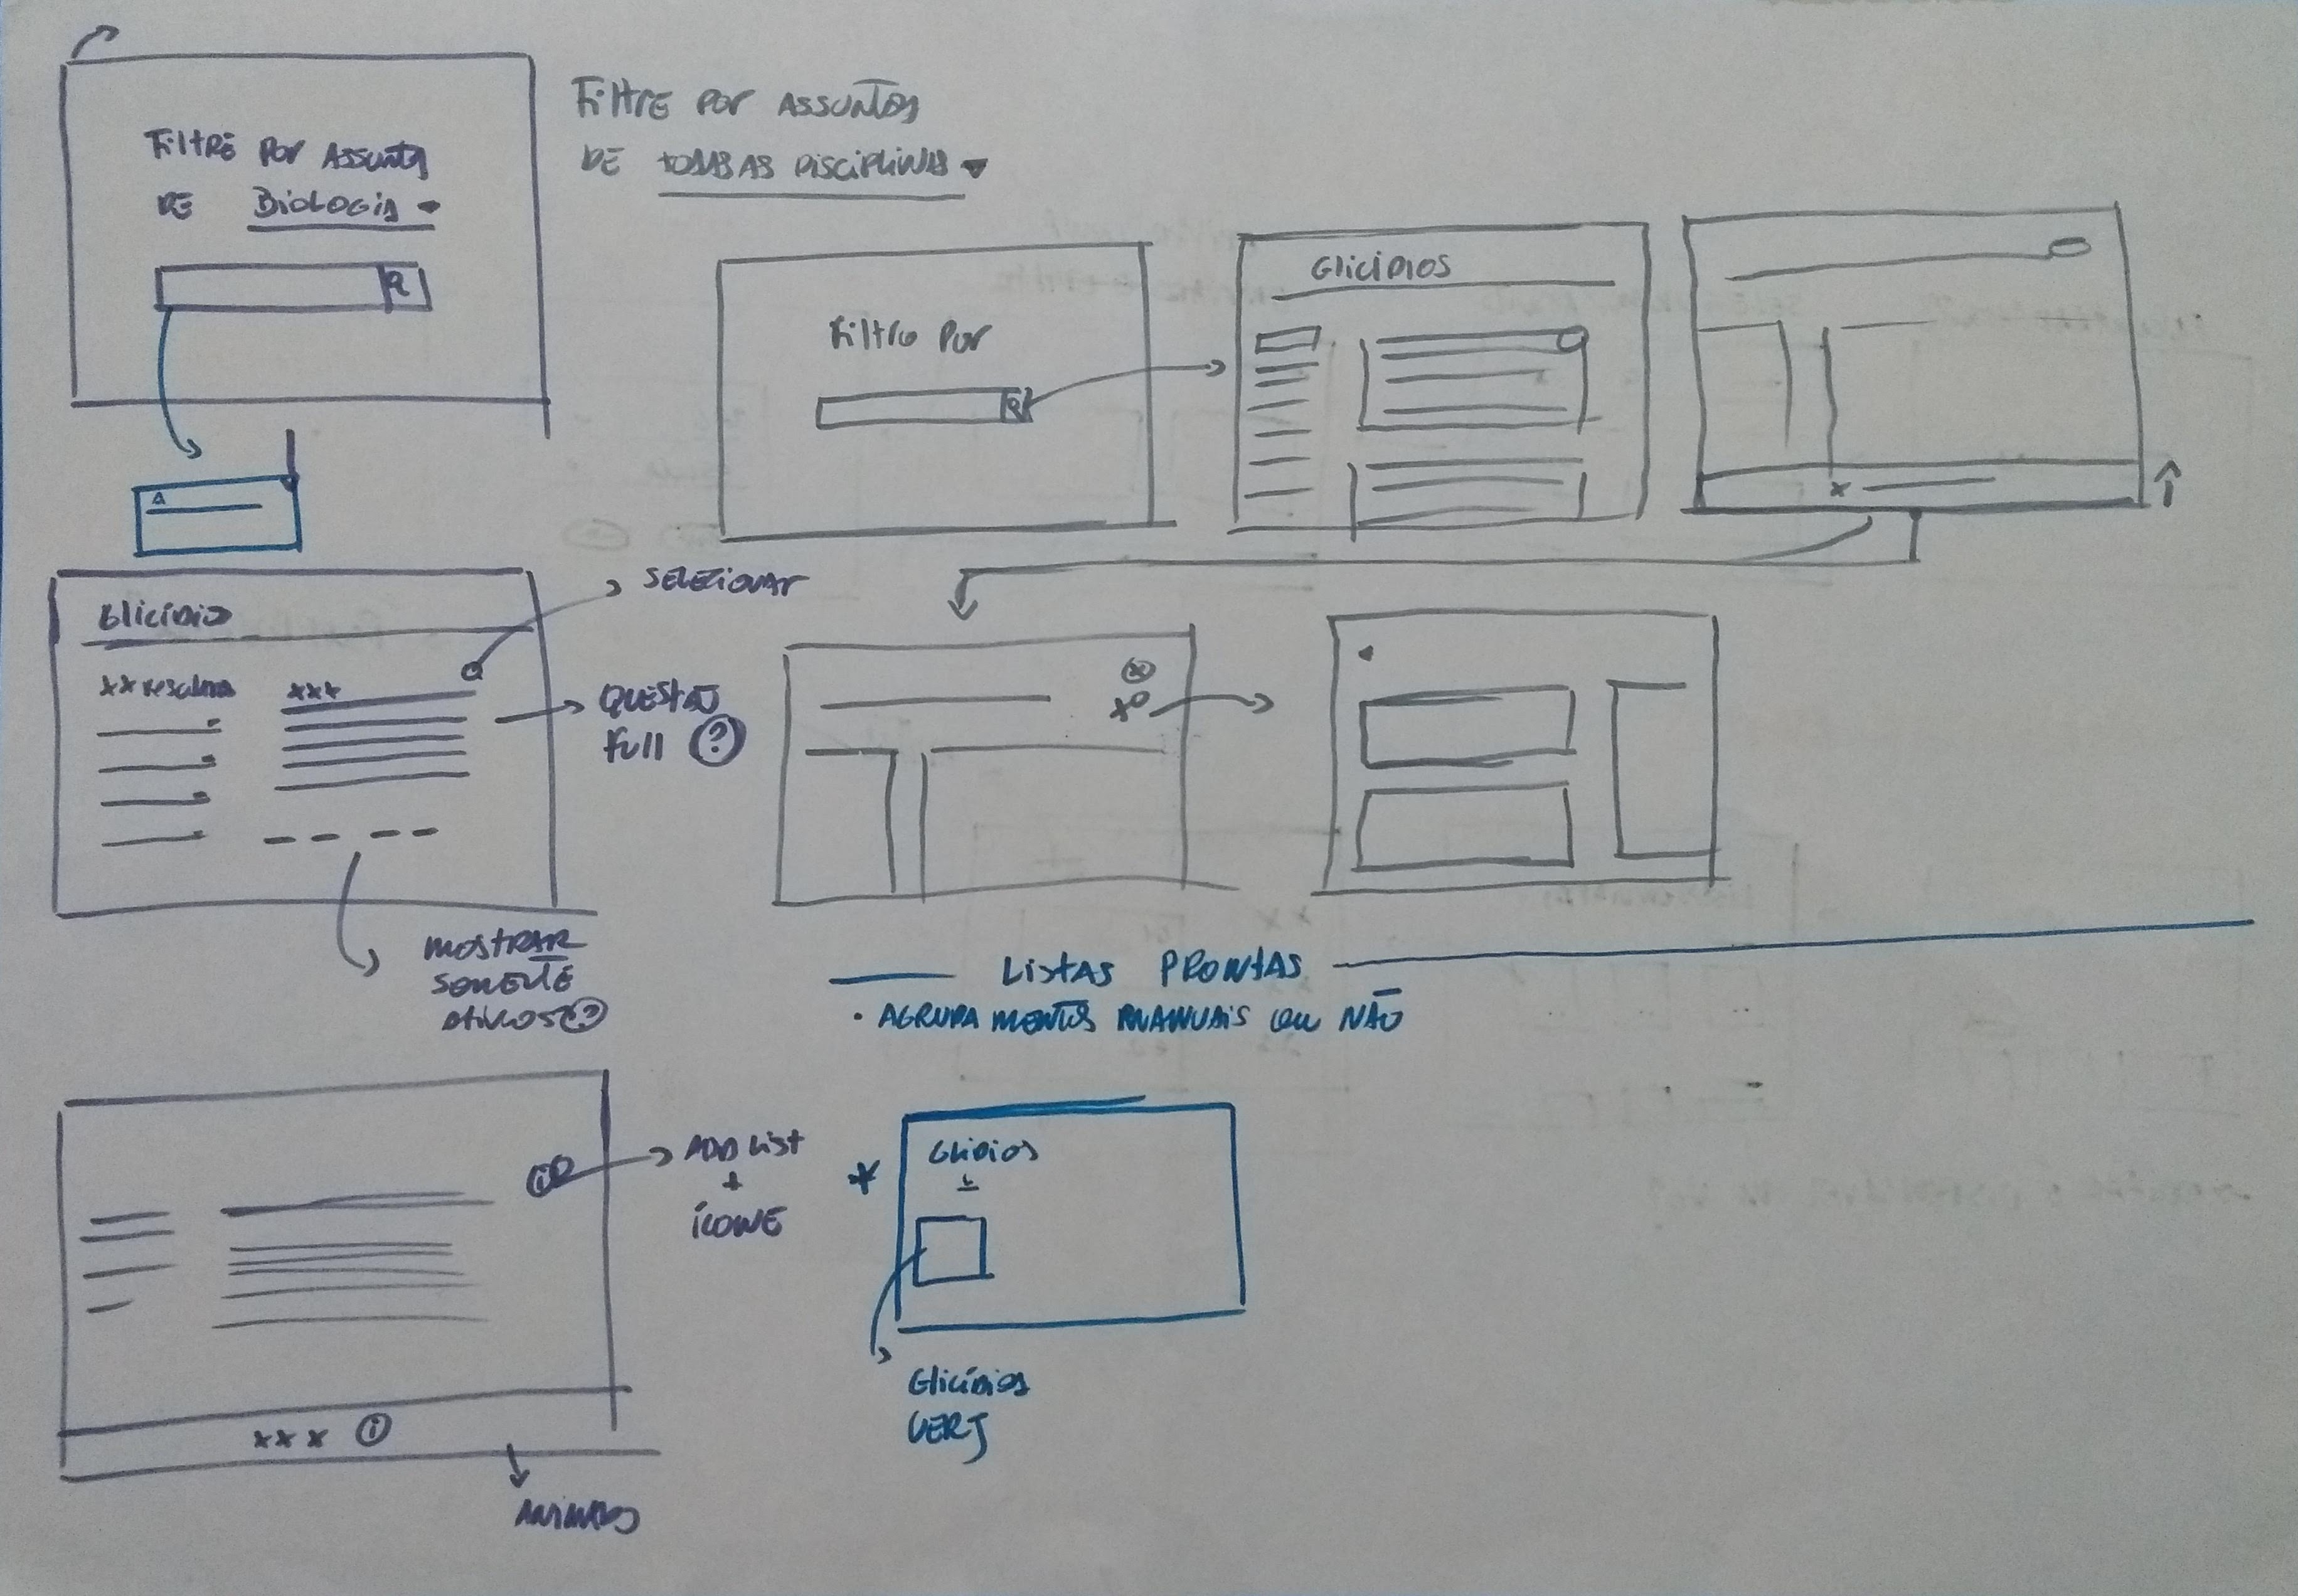 Filtre por assunto
de Biologia
Filtre por assuntos
de todas as disciplinas
Filtro por
Glicídios
Glicídio
xx resolvva
xxx
Selecionar
Questão
Full ?
Mostrar
somente
ativos ?
Listas prontas
• Agrupamentos manuais ou não
Add list
+
ícone
xxx i
Animado
* Glidios
Glicídios
UERJ